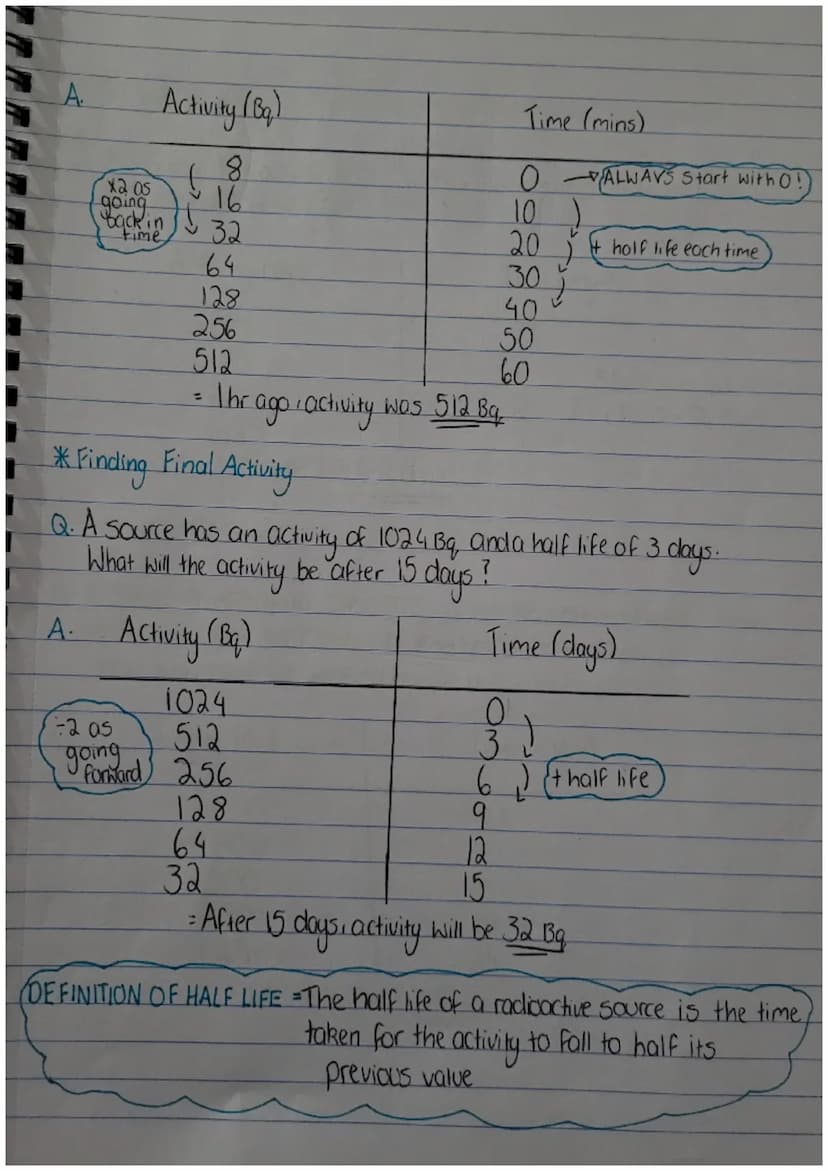 A. Activity (Bq) Time (mins)
8 0 → ALWAYS start with 0!
x2 as going back in time
16 10
32 20 + half life each time
64 30
128 40
256 50
512 60
= 1hr ago, activity was 512 Bq
* Finding Final Activity
Q. A source has an activity of 1024 Bq and a half life of 3 days.
What will the activity be after 15 days?
A. Activity (Bq) Time (days)
1024 0
÷2 as going forward
512 3
256 6 + half life
128 9
64 12
32 15
= After 15 days, activity will be 32 Bq
DEFINITION OF HALF LIFE = The half life of a radioactive source is the time
taken for the activity to fall to half its
previous value